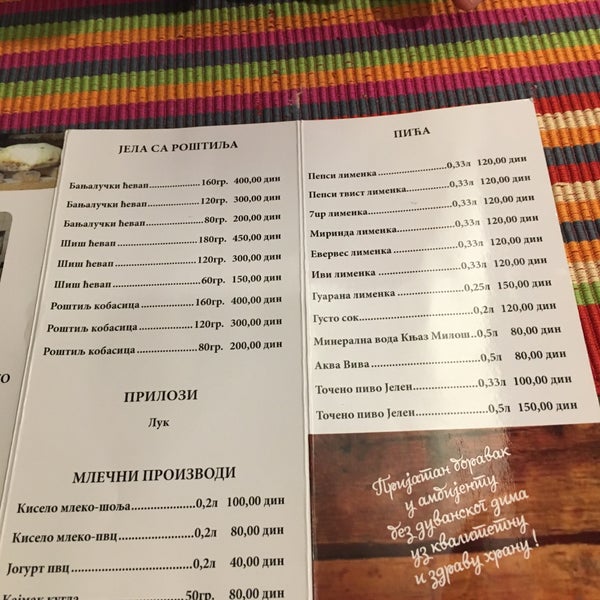 ЈЕЛА СА РОШТИЉА
Бањалучки ћевап.....................160гр. 400,00 дин
Бањалучки ћевап.....................120гр. 300,00 дин
Бањалучки ћевап.....................80гр. 200,00 дин
Шиш ћевап...............................180гр. 450,00 дин
Шиш ћевап...............................120гр. 300,00 дин
Шиш ћевап...............................60гр. 150,00 дин
Роштиљ кобасица...................160гр. 400,00 дин
Роштиљ кобасица...................120гр. 300,00 дин
Роштиљ кобасица...................80гр. 200,00 дин
ПРИЛОЗИ
Лук
МЛЕЧНИ ПРОИЗВОДИ
Кисело млеко-шоља...............0,2л 100,00 дин
Кисело млеко-пвц..................0,2л 80,00 дин
Јогурт пвц...............................0,2л 40,00 дин
Кајмак кугла...........................50гр. 80,00 дин
ПИЋА
Пепси лименка.........................0,33л 120,00 дин
Пепси твист лименка..............0,33л 120,00 дин
7up лименка............................0,33л 120,00 дин
Миринда лименка....................0,33л 120,00 дин
Евервес лименка.....................0,33л 120,00 дин
Иви лименка...........................0,33л 120,00 дин
Гуарана лименка.....................0,25л 150,00 дин
Густо сок.................................0,2л 120,00 дин
Минерална вода Књаз Милош..0,5л 80,00 дин
Аква Вива................................0,5л 80,00 дин
Точено пиво Јелен...................0,33л 100,00 дин
Точено пиво Јелен...................0,5л 150,00 дин
Пријатан боравак
у амбијенту
без дуванског дима
уз квалитетну
и здраву храну!